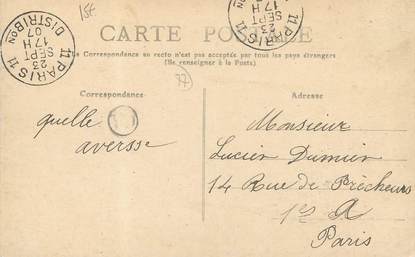 15€
CARTE POSTALE
La Correspondance au recto n'est pas acceptée par tous les pays étrangers
(Se renseigner à la Poste)
PARIS 11
23
SEPT
17H
07
DISTRIBON
11 PARIS 11
23
SEPT
17H
77
Correspondance
Adresse
quelle
aversse
Monsieur
Lucien Dumien
14 Rue de Prêcheurs
1er A
Paris